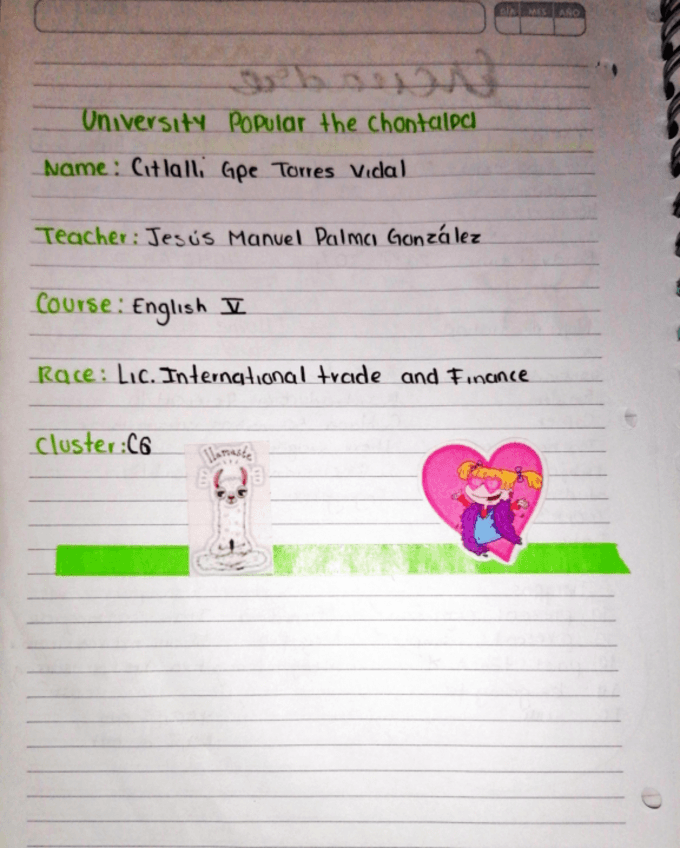 DÍA MES AÑO
University Popular the Chontalpa
Name: Citlalli Gpe Torres Vidal
Teacher: Jesús Manuel Palma González
Course: English V
Race: Lic. International trade and Finance
Cluster: C6
llamaste